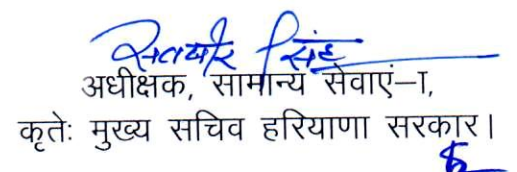 सतबीर सिंह
अधीक्षक, सामान्य सेवाएं–I,
कृतेः मुख्य सचिव हरियाणा सरकार।